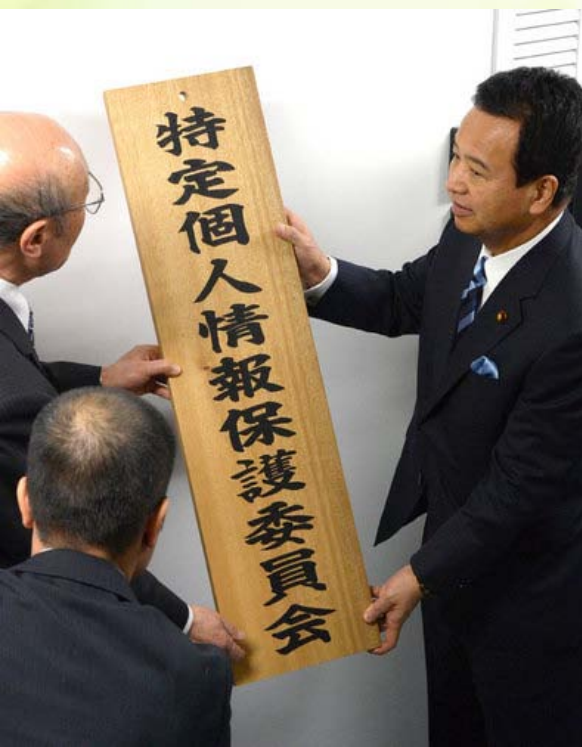 特定個人情報保護委員会